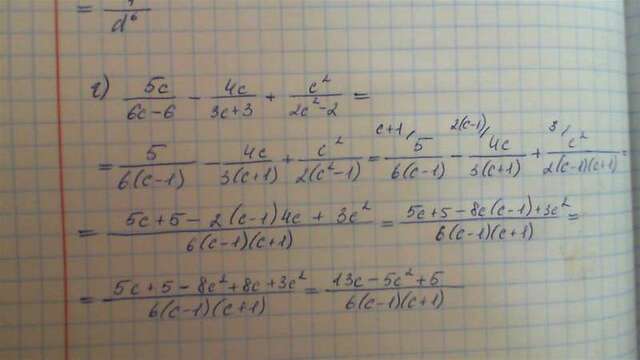 = / d⁶
г) 5c/(6c-6) - 4c/(3c+3) + c²/(2c²-2) =
= 5/(6(c-1)) - 4c/(3(c+1)) + c²/(2(c²-1)) = ᶜ⁺¹⁄ 5/(6(c-1)) - ²⁽ᶜ⁻¹⁾⁄ 4c/(3(c+1)) + ³⁄ c²/(2(c-1)(c+1)) =
= (5c+5-2(c-1)4c+3c²)/(6(c-1)(c+1)) = (5c+5-8c(c-1)+3c²)/(6(c-1)(c+1)) =
= (5c+5-8c²+8c+3c²)/(6(c-1)(c+1)) = (13c-5c²+5)/(6(c-1)(c+1))